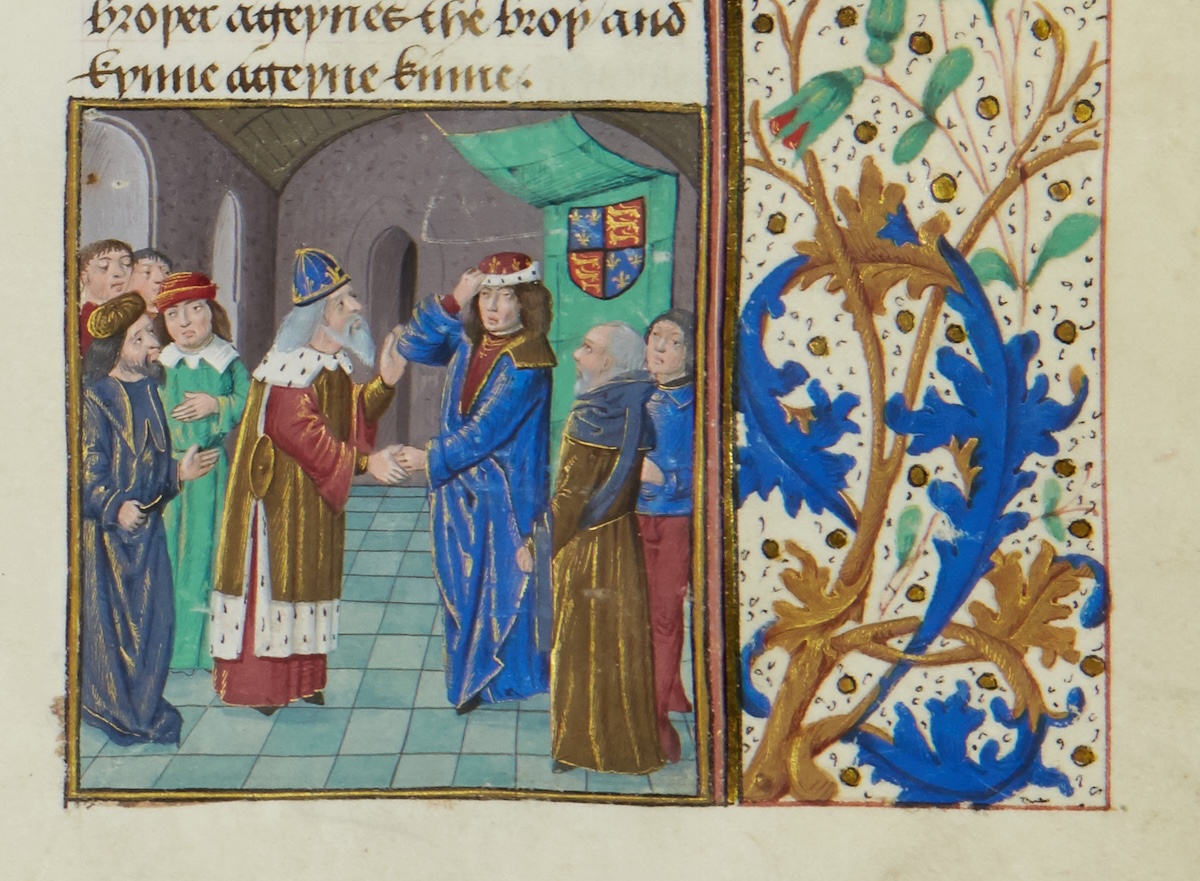 broþer aȝeynes the broþ and
kynne aȝeyne kinne.